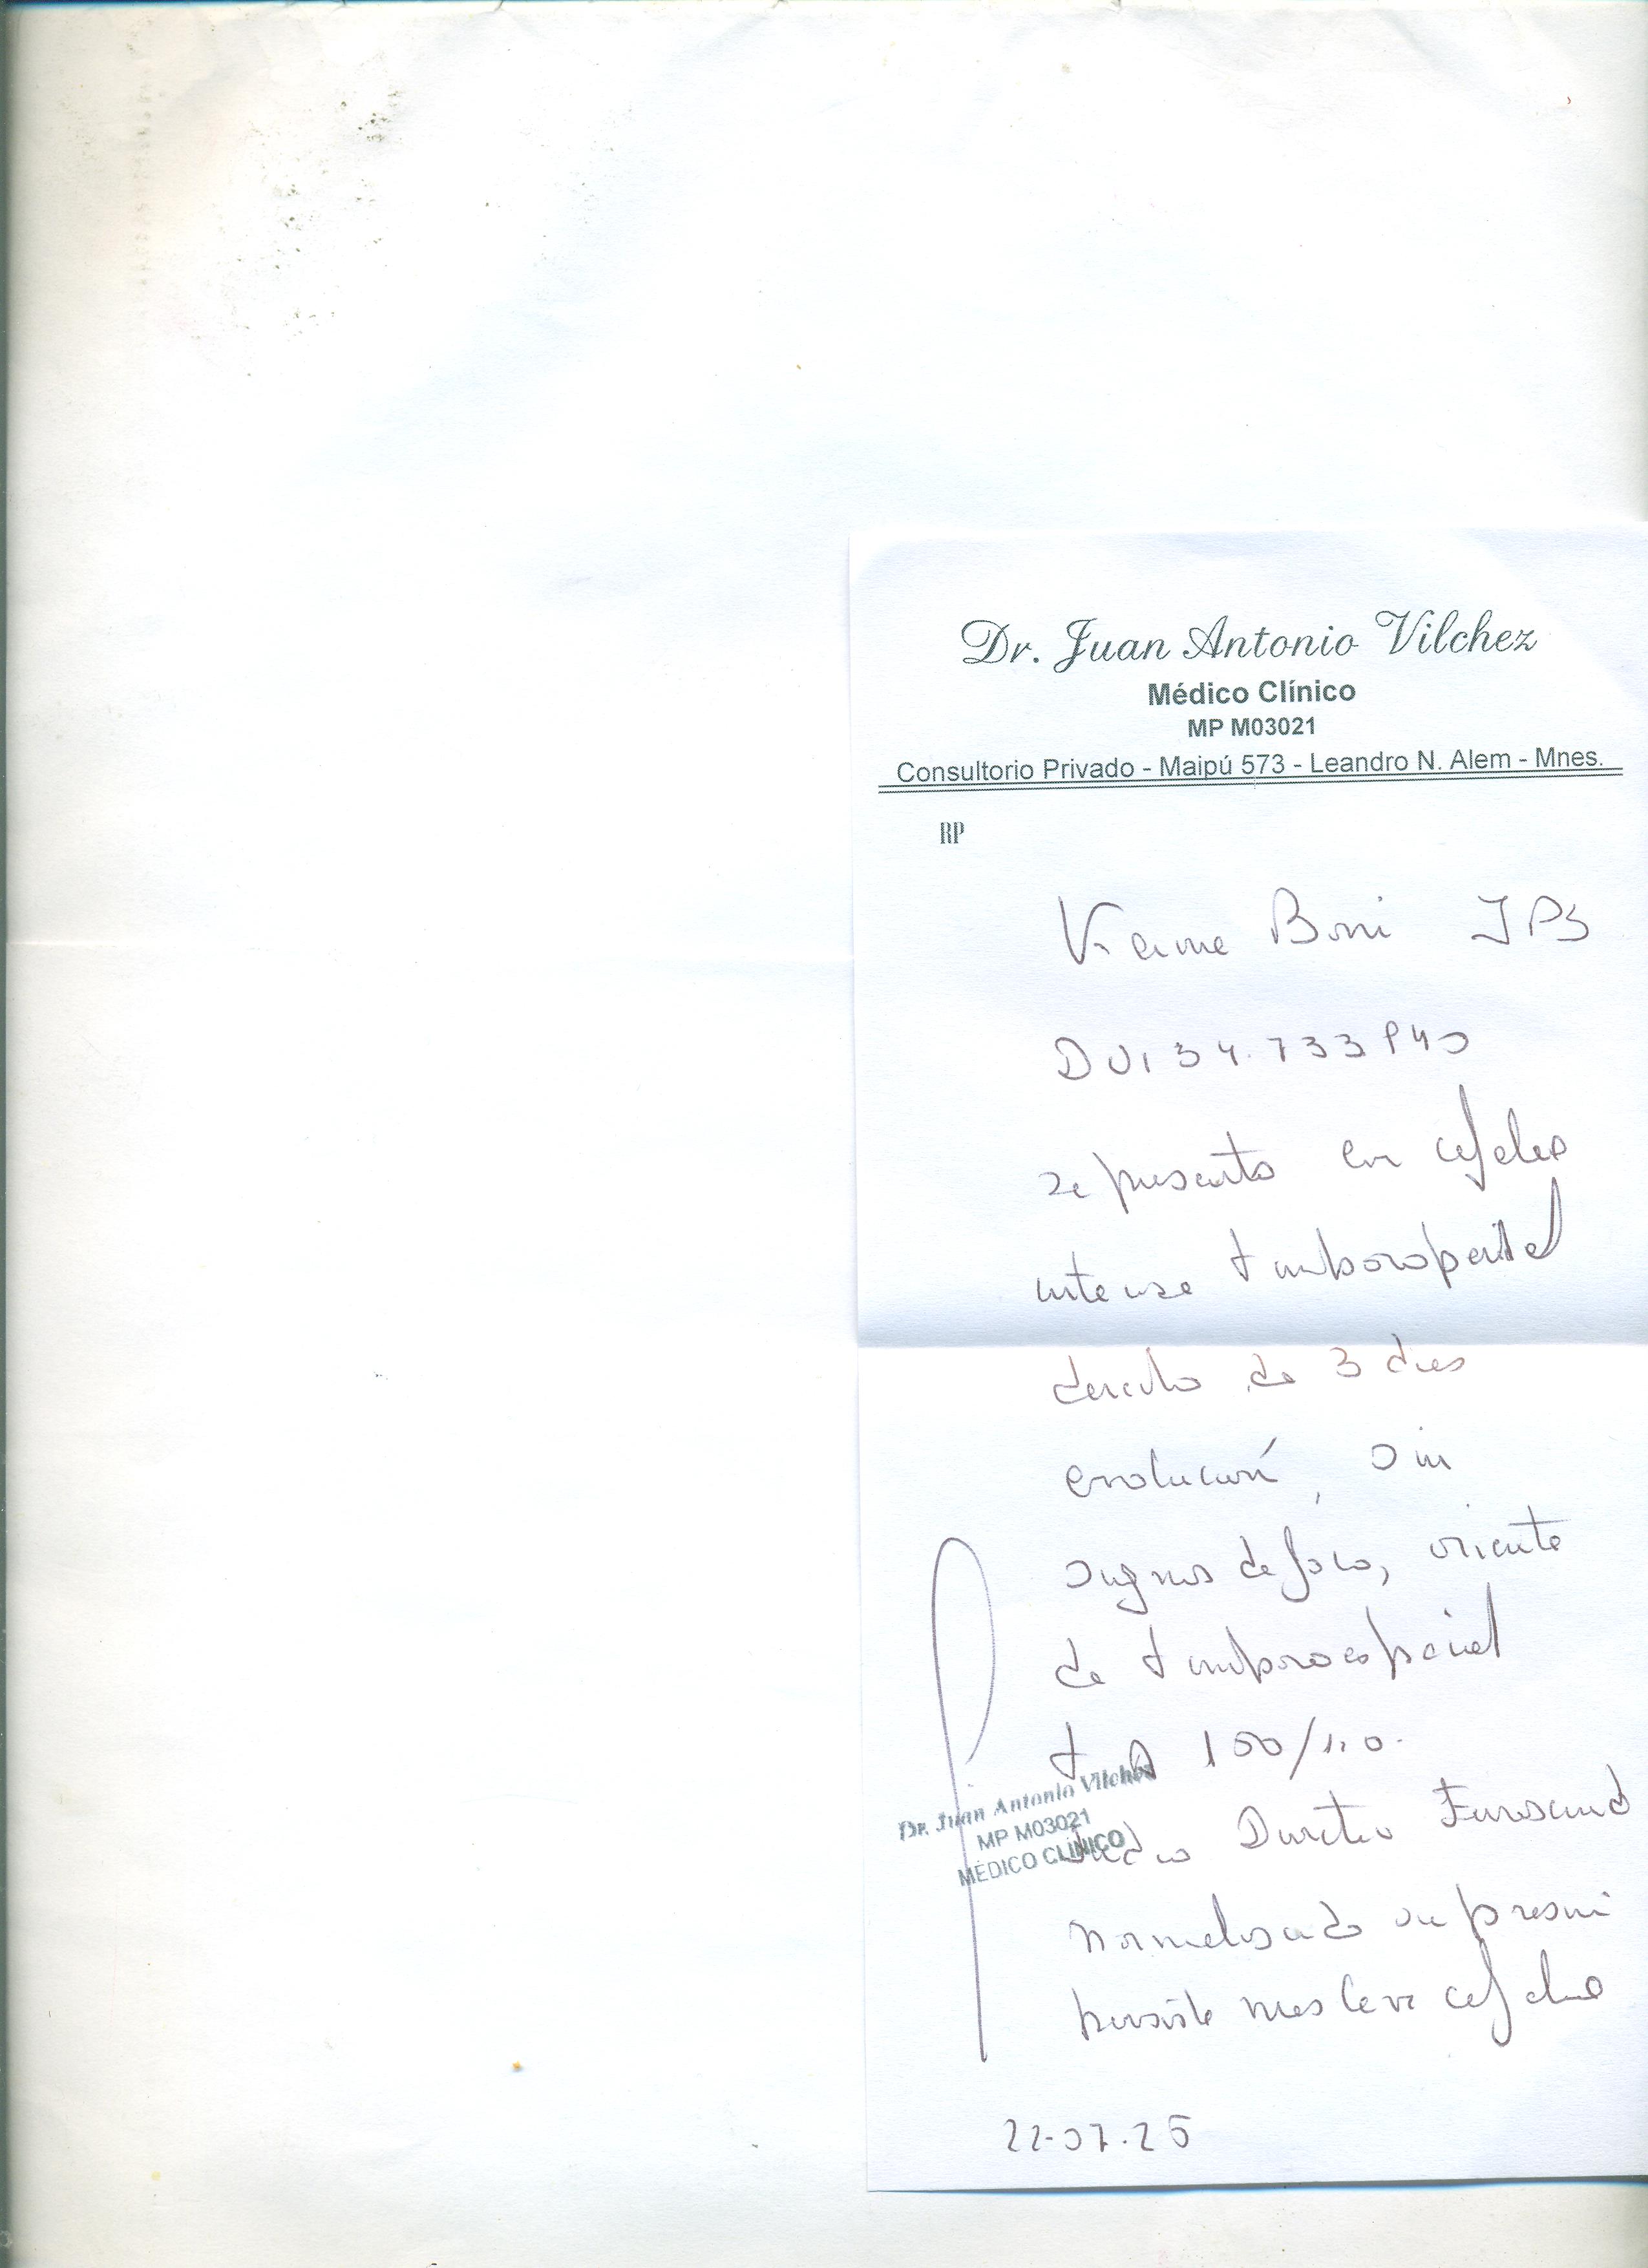 Dr. Juan Antonio Vilchez
Médico Clínico
MP M03021
Consultorio Privado - Maipú 573 - Leandro N. Alem - Mnes.
RP
Boni IPS
DNI 34.733
se presenta con cefalea
intensa temporoparietal
derecho de 3 dias
evolución, sin
signos de foco,
de temporoespacial
TA
Dr. Juan Antonio Vilchez
MP M03021
MÉDICO CLÍNICO
Furosemid
normalizado su presni
persiste mas leve cefalea
22-07-25